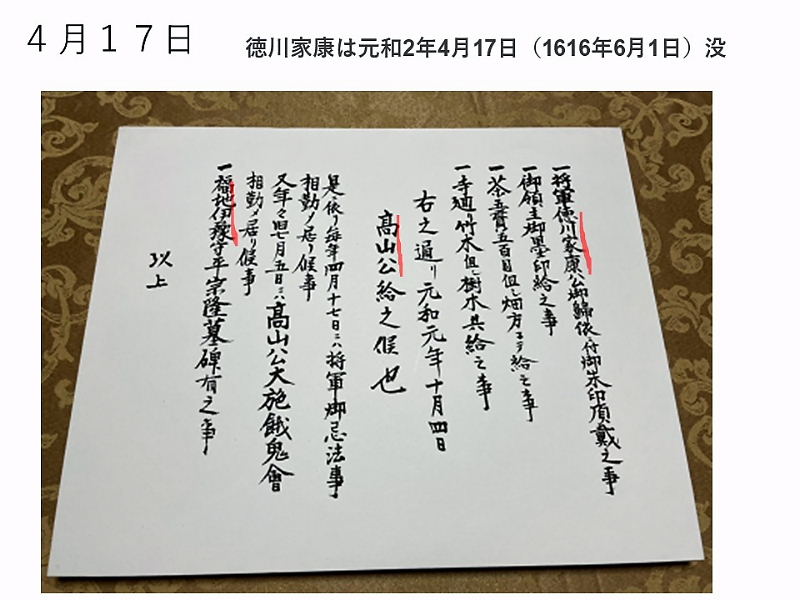 ４月１７日
徳川家康は元和2年4月17日（1616年6月1日）没
一将軍徳川家康公御歸依ニ付御朱印頂戴之事
一御領主御墨印給之事
一茶五貫五百目但し畑方ニテ給之事
一寺廻り竹木但し樹木共給之事
右之通り元和元年十月四日
高山公給之候也
是依り毎年四月十七日ニハ将軍御忌法事
相勤メ居り候事
又年々旧七月五日ニハ高山公大施餓鬼會
相勤メ居り候事
一福地伊豫守平宗隆墓碑有之事
以上